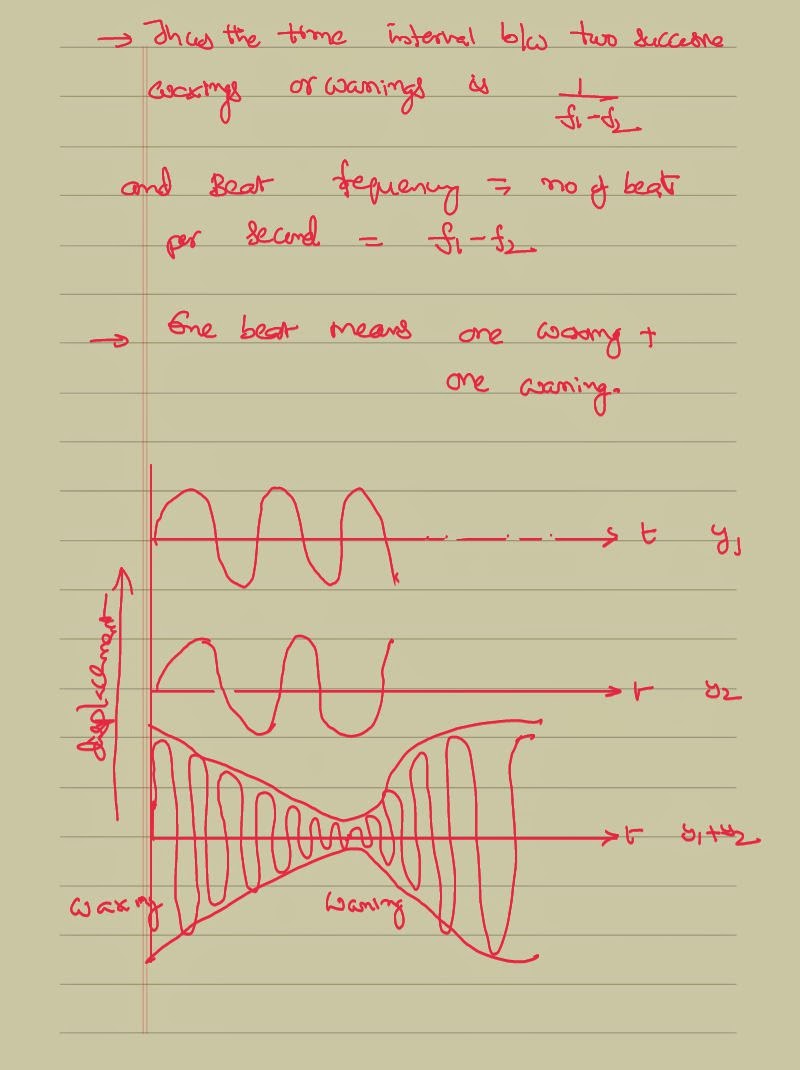 → Thus the time interval b/w two succesive
waxings or wanings is 1/(f₁-f₂)
and Beat frequency = no of beat
per second = f₁-f₂
→ One beat means one waxing +
one waning.
t y₁
displacement
t y₂
t y₁+y₂
waxing waning